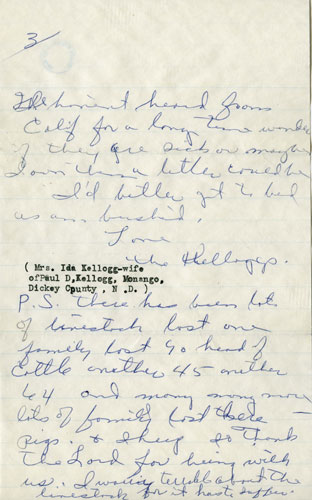 3/
haven't heard from
Calif for a long time wonder
if they are sick or maybe
I owe them a letter could be
I'd better get to bed
as am bushed.
Love
the Kelloggs.
( Mrs. Ida Kellogg-wife
ofPaul D,Kellogg, Monango,
Dickey County , N .D. )
P.S. There has been lots
of livestock lost one
family lost 90 head of
Cattle another 45 another
64 and many many more
lots of family lost there
Pigs. & Sheep so thank
the Lord for being with
us. I waiting tell all about the
livestock for it last